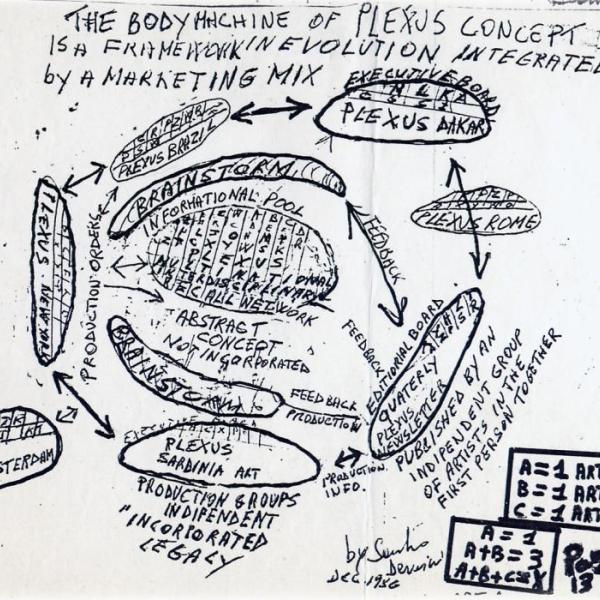 THE BODY MACHINE OF PLEXUS CONCEPT
IS A FRAMEWORK IN EVOLUTION INTEGRATED
by A MARKETING MIX
EXECUTIVE BOARD
PLEXUS DAKAR
PLEXUS BRAZIL
BRAINSTORM
PLEXUS ROME
INFORMATIONAL POOL
FEEDBACK
PLEXUS NEW YORK
PRODUCTION ORDERS
ALL NETWORK
ABSTRACT
CONCEPT
NOT INCORPORATED
FEEDBACK
EDITIONAL BOARD
QUATERLY
PLEXUS
NEWSLETTER
PUBLISHED BY AN
INDIPENDENT GROUP
OF ARTISTS IN THE
FIRST PERSON TOGETHER
BRAINSTORM
FEEDBACK
PRODUCTION
STERDAM
EXECUTIVE
PLEXUS
SARDINIA ART
PRODUCTION
INFO.
PRODUCTION GROUPS
INDIPENDENT
"INCORPORATED
LEGACY
A = 1 ART
B = 1 ART
C = 1 ART
A = 1
A+B = 3
A+B+C = X
by
DEC. 1986
13